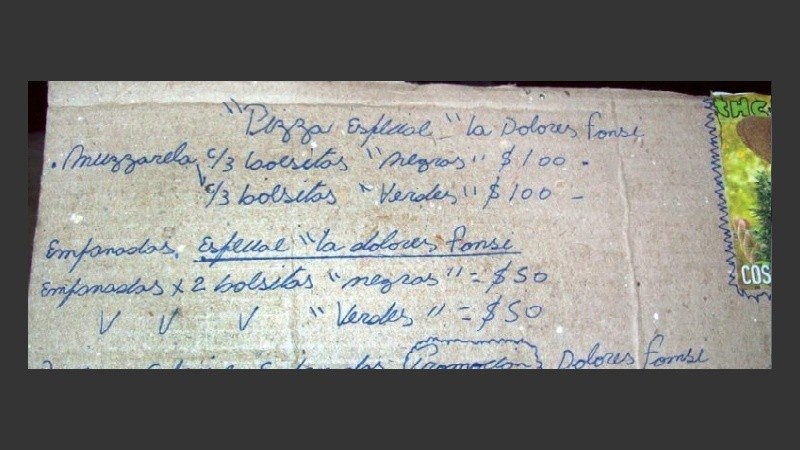 "Pizza Especial "la Dolores Fonsi
. Muzzarela c/3 bolsitas "negras" $100 -
c/3 bolsitas "Verdes" $100 -
Empanadas Especial "la dolores Fonsi
Empanadas x 2 bolsitas "negras" = $50
V V V "Verdes" = $50
Promocion Dolores Fonsi
THC
COS